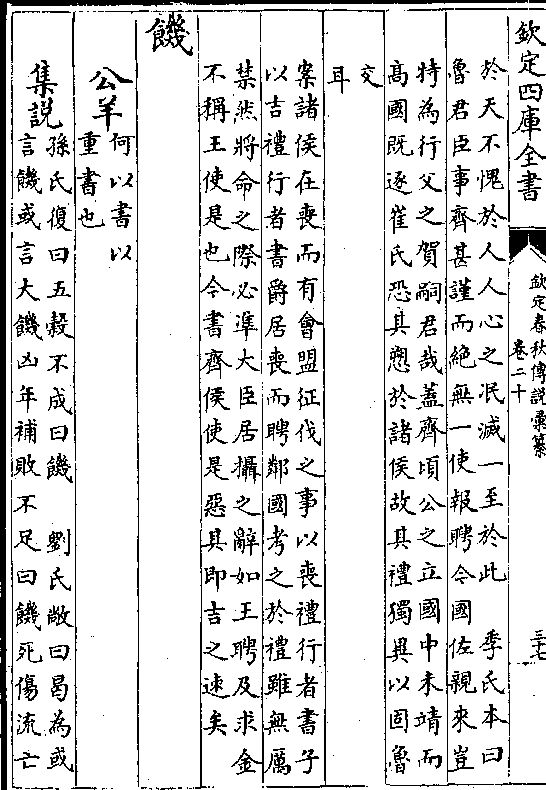 欽定四庫全書
欽定春秋傳說彙纂
卷二十
三十七
於天不愧於人人心之泯滅一至於此　季氏本曰
魯君臣事齊甚謹而絶無一使報聘今國佐親來豈
特為行父之賀嗣君哉蓋齊頃公之立國中未靖而
高國既逐崔氏恐其愬於諸侯故其禮獨異以固魯
交
耳
案諸侯在喪而有會盟征伐之事以喪禮行者書子
以吉禮行者書爵居喪而聘鄰國考之於禮雖無厲
禁然將命之際必準大臣居攝之辭如王聘及求金
不稱王使是也今書齊侯使是惡其即吉之速矣
饑
公羊
何以書以
重書也
集説
孫氏復曰五穀不成曰饑　劉氏敞曰曷為或
言饑或言大饑凶年補敗不足曰饑死傷流亡